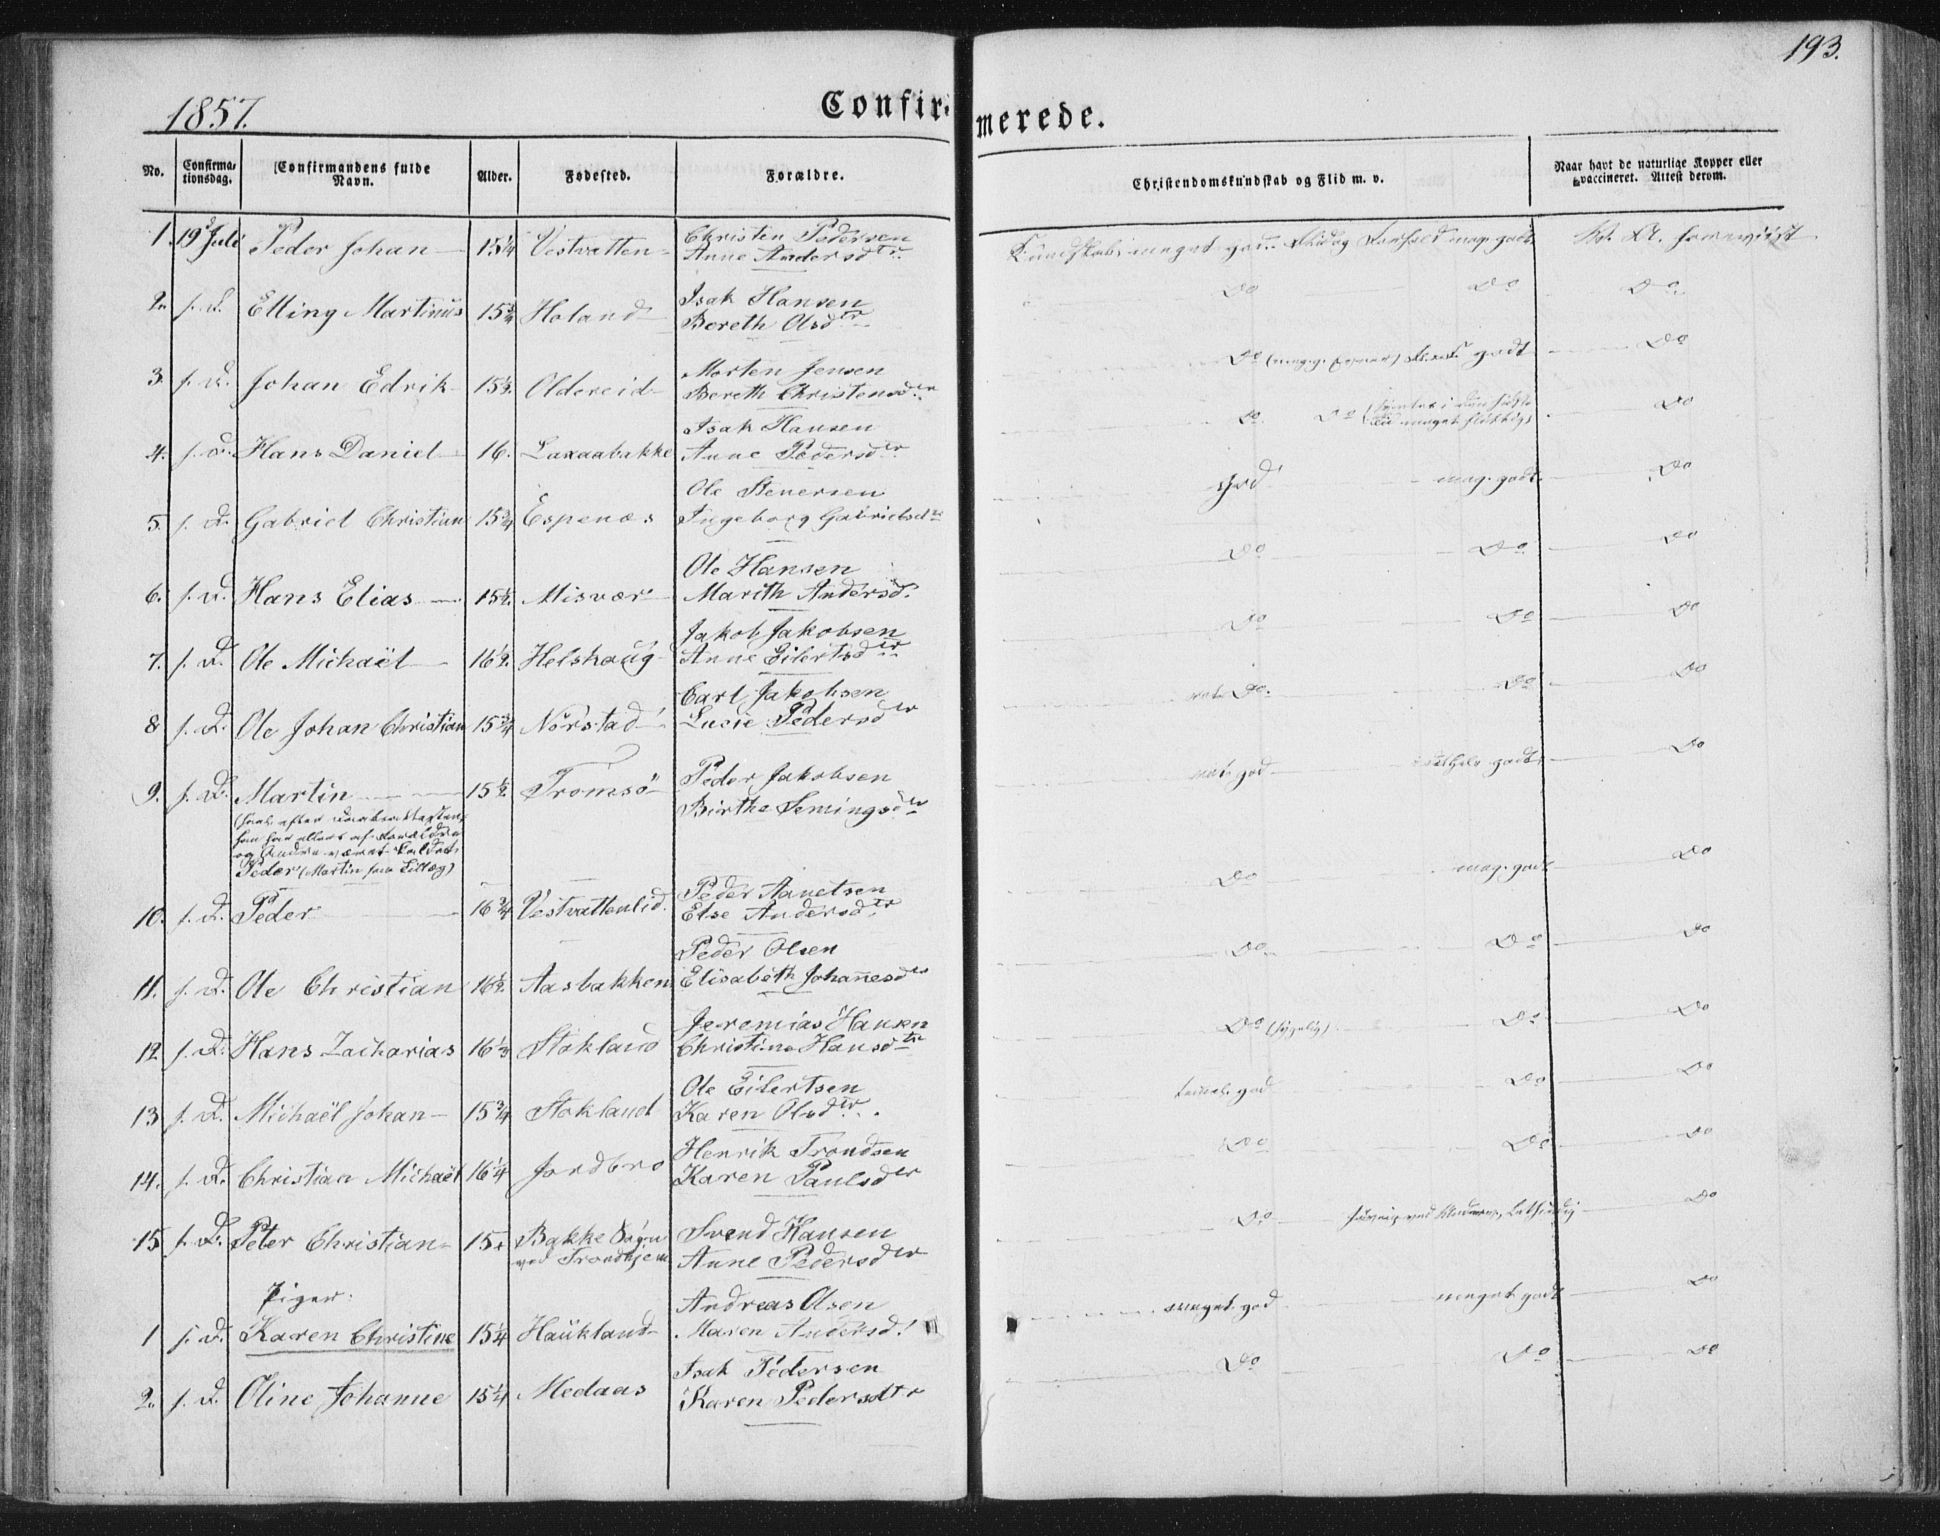 193.
1857.
Confir=
merede.
No.
Confirma=
tionsdag.
Confirmandens fulde
Navn.
Alder.
Fødested.
Forældre.
Christendomskundskab og Flid m. v.
Naar havt de naturlige Kopper eller
vaccineret. Attest derom.
1. 19de Juli Peder Johan 15 1/4 Vestvatten
Christen Pedersen
Anne Andersdtr
Kundskab meget god. Flid og Forhold meg. godt
2. s. D. Elling Martinus 15 3/4 Holand
Isak Hansen
Bereth Olsdtr
Do Do Do
3. s. D. Johan Edrik 15 1/2 Oldereid
Morten Jensen
Bereth Christensdtr
Do godt Do
4. s. D. Hans Daniel 16. Laxaabakke
Isak Hansen
Anne Pedersdtr
Do Do meget flittig Do
5. s. D. Gabriel Christian 15 3/4 Espenæs
Ole Stenersen
Ingeborg Gabrielsdtr
god meg. godt. Do
6. s. D. Hans Elias 15 1/2 Misvær
Ole Hansen
Marith Andersd.
Do Do Do
7. s. D. Ole Michaël 16 1/2 Helshaug
Jakob Jakobsen
Anne Eilertsdtr
Do Do Do
8 s. D. Ole Johan Christian 15 3/4 Norstad
Carl Jakobsen
Lucie Pedersdtr
Do. Do Do
9. s. D. Martin 15 1/2 Tromsö
Peder Jakobsen
Birthe Semingsdtr
god godt Do
og Andre været kaldet
Peder (Martin som Tillæg)
10. s. D. Peder 16 3/4 Vestvattenlid.
Peder Aanetsen
Else Andersdtr
Do meg. godt Do
11. s. D. Ole Christian 16 1/2 Aasbakken
Peder Olsen
Elisabeth Johannesdtr
Do Do Do
12. s. D. Hans Zacharias 16 1/2 Stokland
Jeremias Hansen
Christina Hansdtr
Do (sygelig) Do Do
13 s. D. Michaël Johan 15 3/4 Stokland
Ole Eilertsen
Karen Olsdtr.
god Do Do
14. s. D. Christian Michael 16 1/4 Jordbro
Henrik Trondsen
Karen Paulsdtr
Do Do Do
15 s. D. Peter Christian 15 Bakke Sogn
ved Trondhjem
Svend Hansen
Anne Pedersdtr
Do Do
Piger:
1 s. D. Karen Christine 15 1/4 Haukland
Andreas Olsen
Maren Andersd.
meget god meget godt Do
2. s. D. Oline Johanne 15 1/4 Medaas
Isak Pedersen
Karen Pedersdtr
Do Do Do